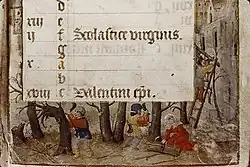 d
e
f Scolastice virginis.
g
x a
b
xviij e Valentini epi.